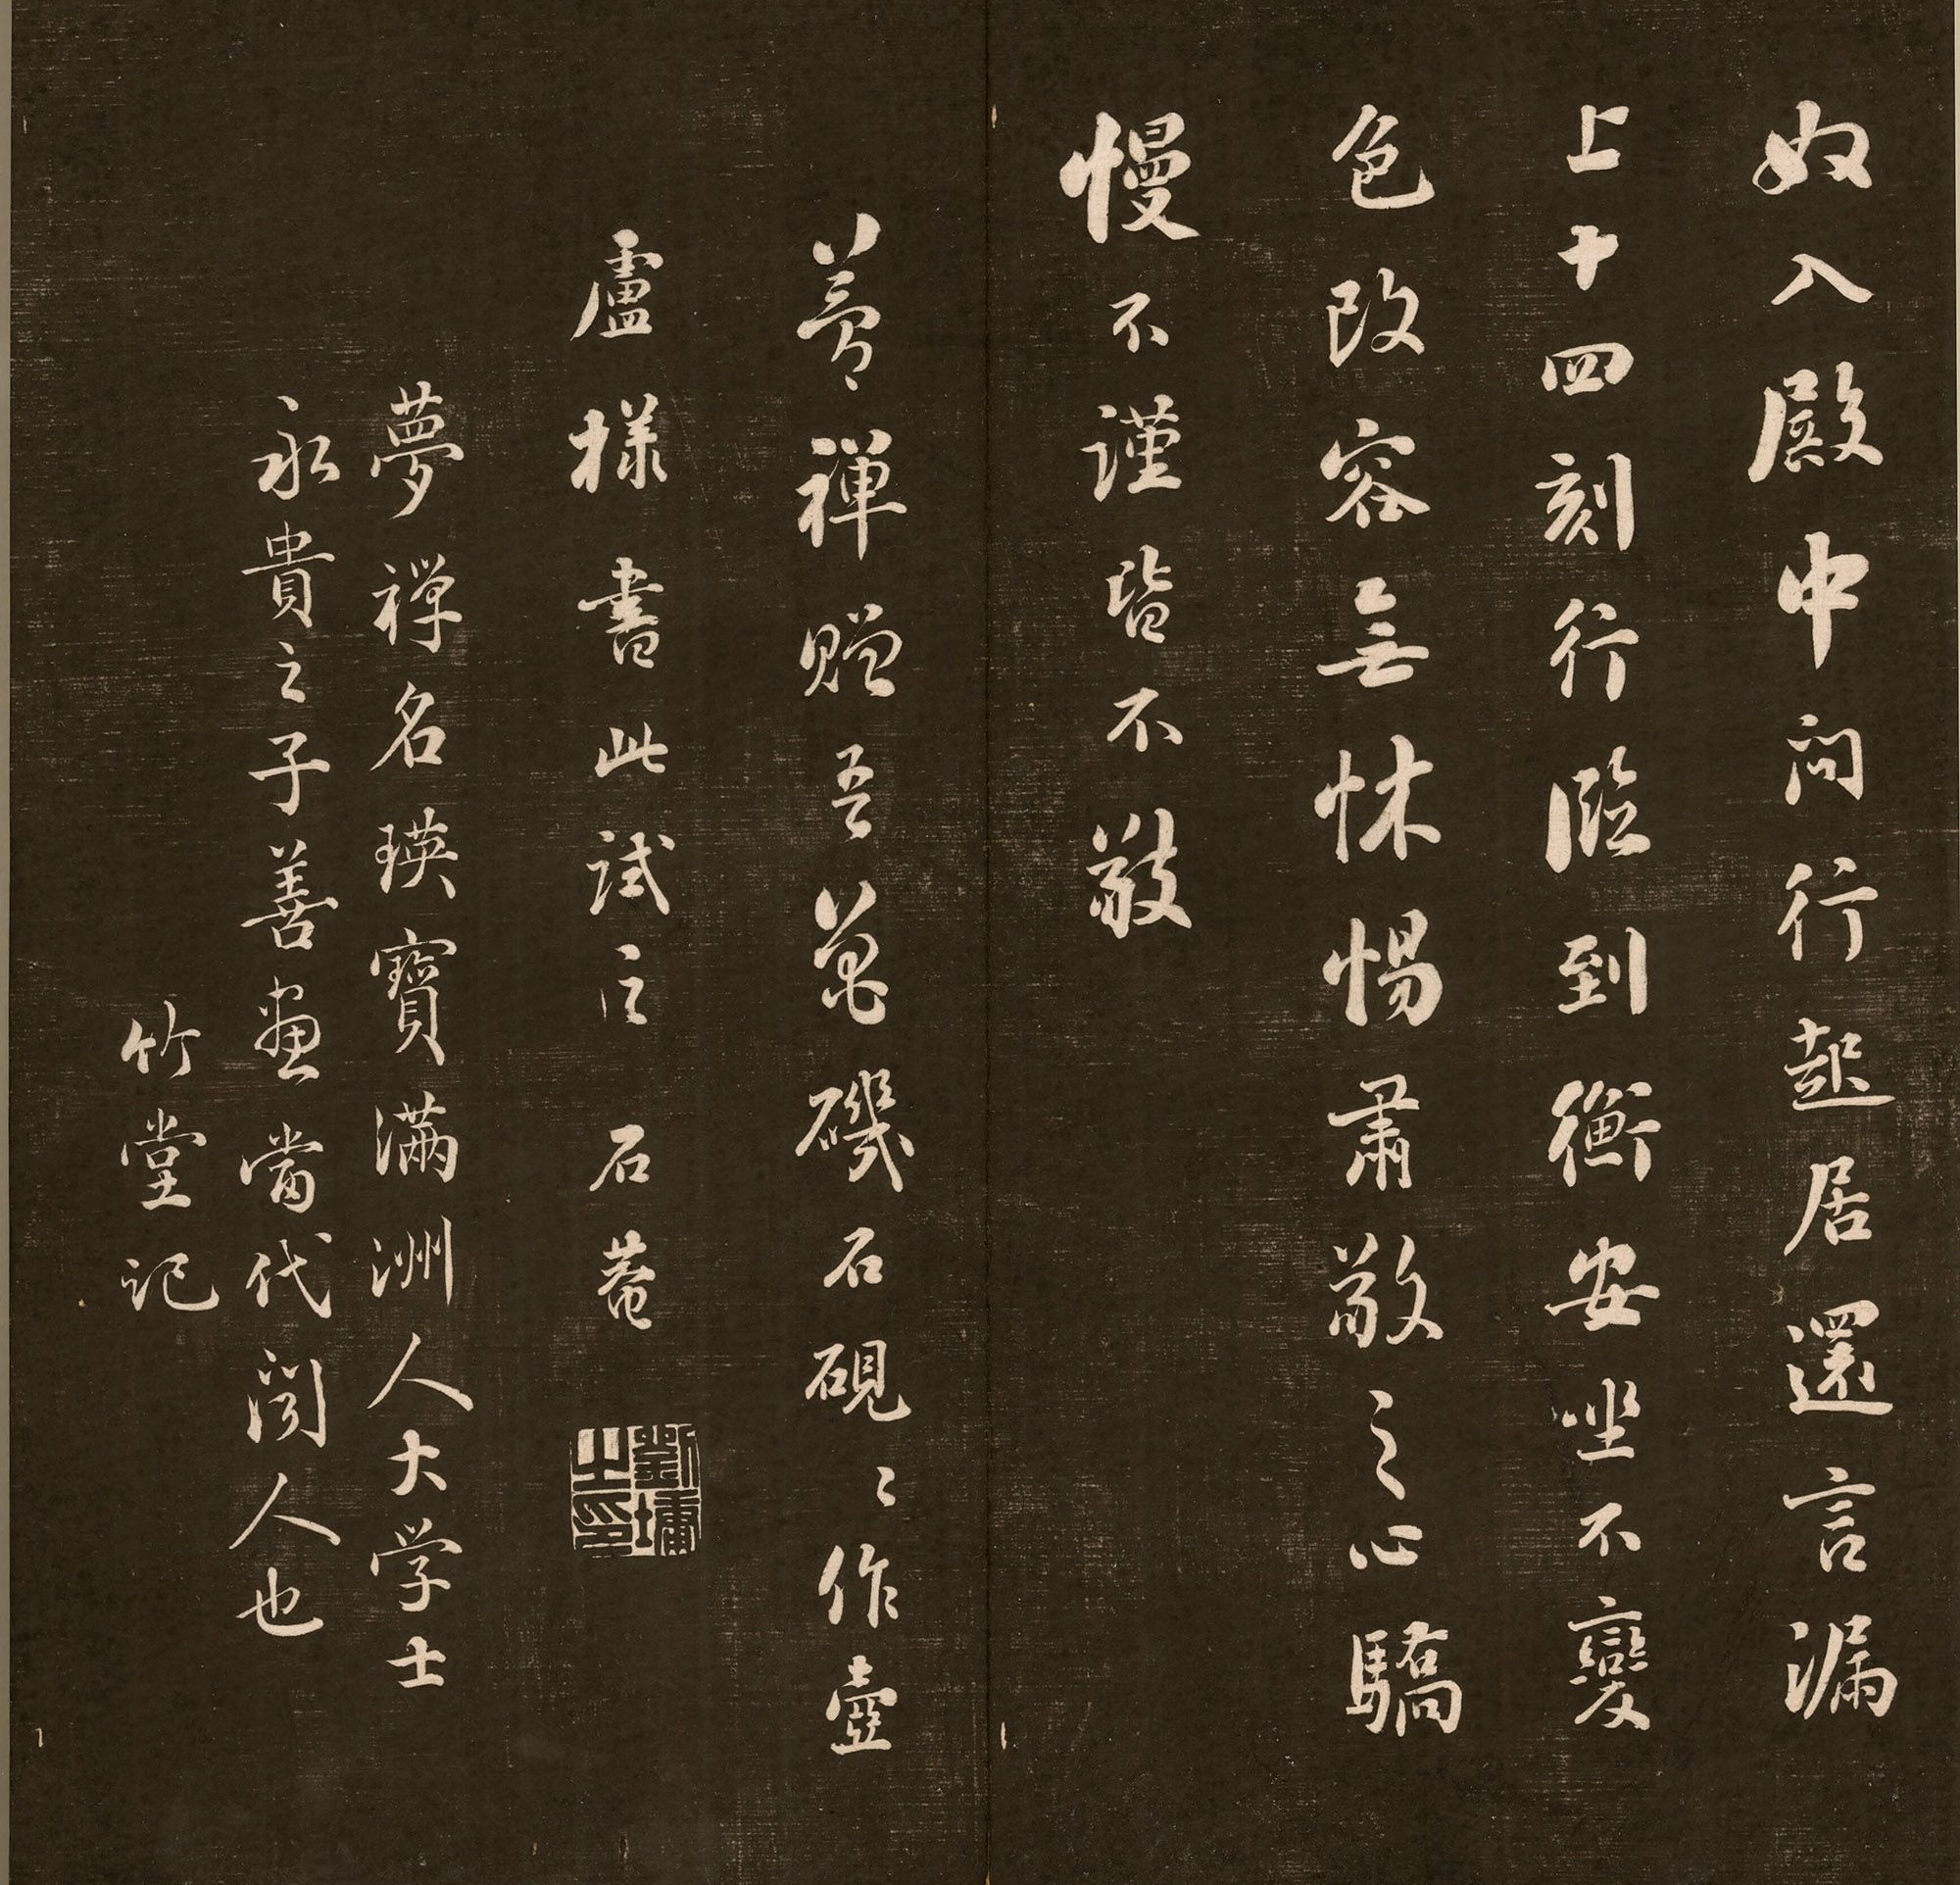 奴入殿中问行起居還言漏
上十四刻行臨到衡安坐不變
色改容無怵惕肅敬之心驕
慢不謹皆不敬
夢禪贈吾萬磯石硯〻作壺
盧樣書此試之 石菴
劉墉之印
夢禪名瑛寶滿洲人大学士
永貴之子善畫當代闻人也
竹堂记